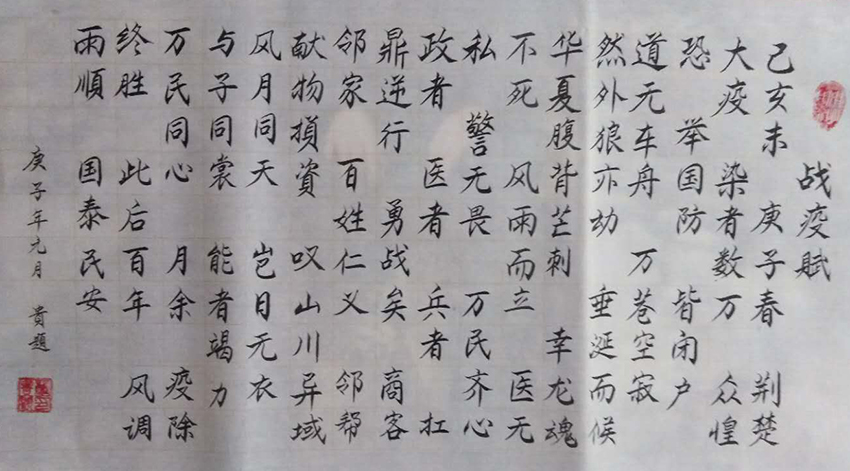 战疫赋
己亥末 庚子春 荆楚
大疫 染者数万 众惶
恐 举国防 皆闭户
道无车舟 万巷空寂
然外狼亦动 垂涎而候
华夏腹背芒刺 幸龙魂
不死 风雨而立 医无
私 警无畏 万民齐心
政者 医者 兵者 扛
鼎逆行 勇战矣 商客
邻家 百姓仁义 邻帮
献物損資 叹山川异域
风月同天 岂日无衣
与子同裳 能者竭力
万民同心 月余 疫除
终胜 此后百年 风调
雨順 国泰民安
庚子年元月 贵题